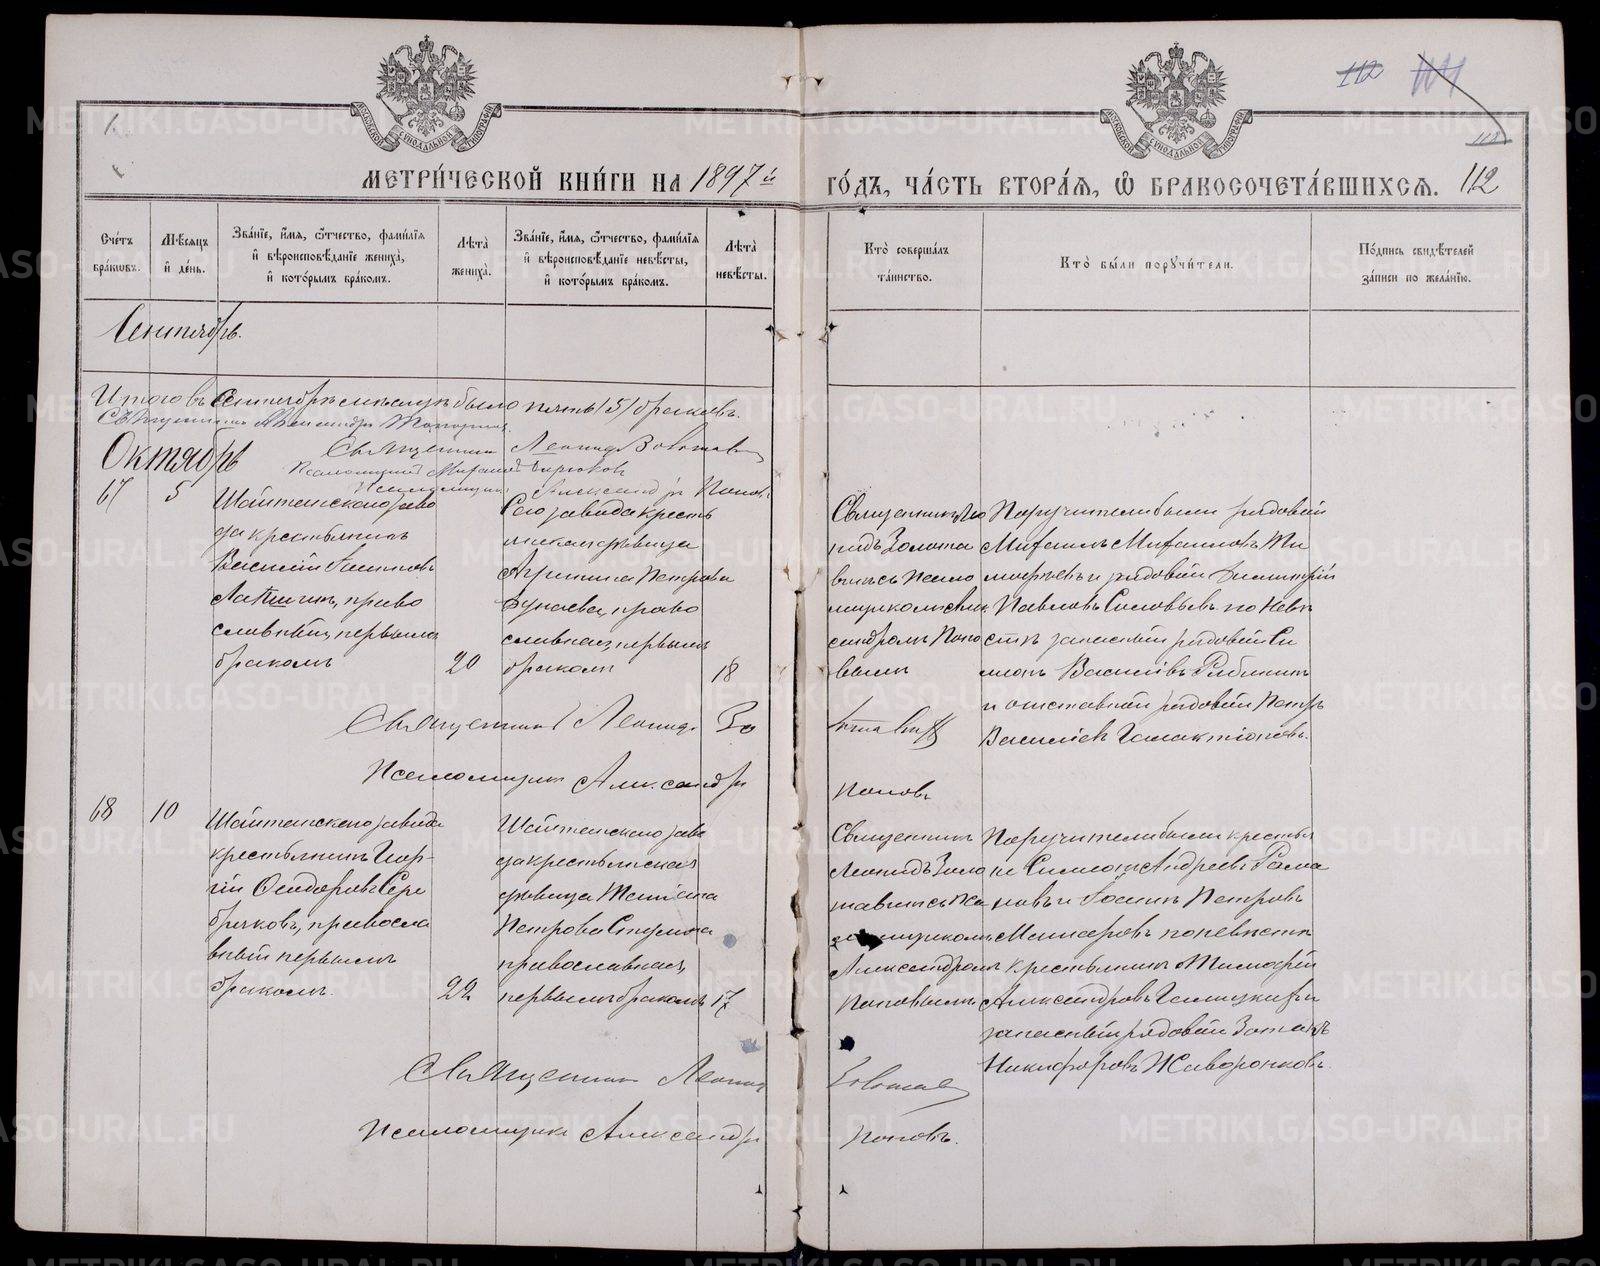 112
112
МЕТРИ́ЧЕСКОЙ КНИ́ГИ НА 1897й ГО́ДЪ, ЧА́СТЬ ВТОРА́Ѧ, Ѽ БРАКОСОЧЕТА́ВШИХСѦ. 112
Сче́тъ бра́кѡвъ.
Мѣсѧцъ и҆ де́нь.
Зва́нїе, и҆́мѧ, ѻ҆́тчество, фами́лїѧ и҆ вѣроисповѣ́данїе жениха̀, и҆ кото́рымъ бра́комъ.
Лѣта̀ жениха̀.
Зва́нїе, и҆́мѧ, ѻ҆́тчество, фами́лїѧ и҆ вѣроисповѣ́данїе невѣ́сты, и҆ кото́рымъ бра́комъ.
Лѣта̀ невѣ́сты.
Кто̀ соверша́лъ та́инство.
Кто̀ бы́ли порꙋчи́тели.
По́дпись свидѣ́телей за́писи по жела́нїю.
Сентябрь.
Итого въ Сентябрѣ мѣсяцѣ было пять /5/ браковъ.
Священникъ Леонидъ Золотавинъ
Псаломщикъ Александръ Поповъ
Октябрь
67
5
Шайтанскаго заво
да крестьянинъ
Василій
право
славный, первымъ
бракомъ
20
Сего завода кресть
янская дѣвица
Агрипина Петрова
право
славная, первымъ
бракомъ
18
Священникъ Лео
нидъ Золота
винъ съ псало
мщикомъ Алек
сандромъ Попо
вымъ
Поручители были рядовой
Михаилъ Михаиловъ Ти
мофеевъ и рядовой Димитрій
Павловъ Соловьевъ по невѣ
стѣ запасный рядовой Си
монъ Василіевъ Рябининъ
и отставной рядовой Петръ
Василіевъ Галактіоновъ.
Священникъ Леонидъ Золотавинъ
Псаломщикъ Александръ Поповъ
68
10
Шайтанскаго завода
крестьянинъ Геор-
гій Сере
бряковъ, правосла
вный первымъ
бракомъ.
22
Шайтанскаго заво
да крестьянская
дѣвица
Петрова
православная,
первымъ бракомъ
17
Священникъ
Леонидъ Золо
тавинъ съ пса
ломщикомъ
Александромъ
Поповымъ
Поручители были крестья
не Симеонъ Андреевъ Рома
новъ и Іоаннъ Петровъ
по невѣстѣ
крестьянинъ Тимофей
Александровъ Галицкихъ и
запасный рядовой
Никифоровъ Жаворонковъ.
Священникъ Леонидъ Золотавинъ
Псаломщикъ Александръ Поповъ.